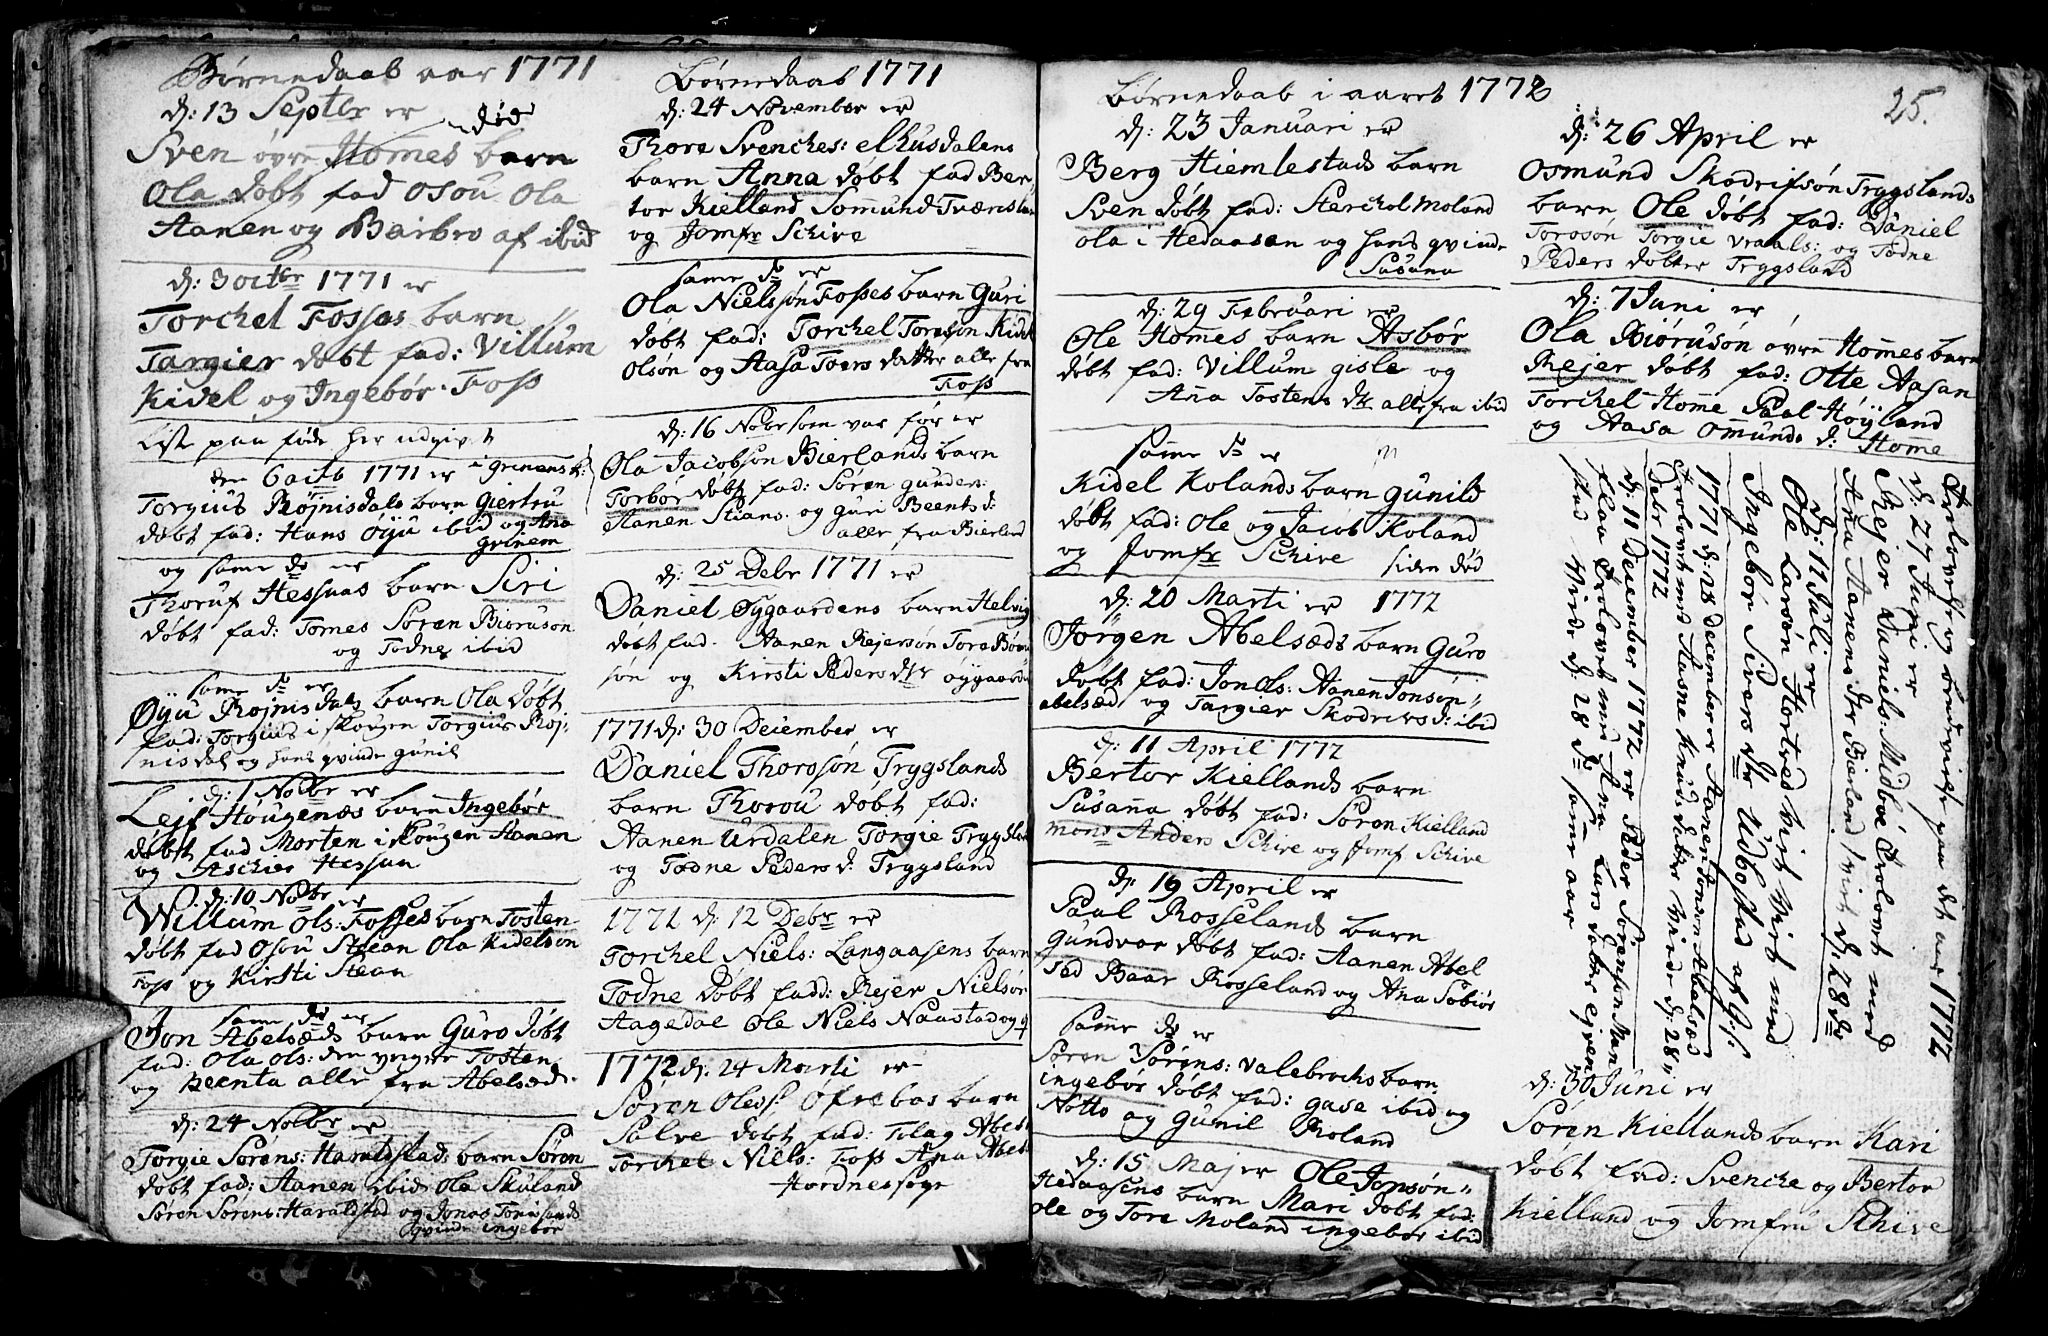 Børnedaab aar 1771
d: 13 Septbr er
død
Sven øvre Homes barn
Ola døbt fad Osou Ola
Aanen og Barbro af ibid
d: 3 octbr 1771 er
Torchel Fosses barn
Targier døbt fad: Villum
Kidel og Ingebør Foss
Liste paa føde her udgivet
den 6 octb 1771 er i grinems k:
Torgius Røjnisdals barn Giertru
døbt fad: Hans Oyu ibid og Ana
grinem
og same do er
Thoruf Hessaas barn Siri
døbt fad: Tomes Søren Biørusøn
og Todne ibid
same do er
Øyu Røjnisdals barn Ola døbt
fad: Torgius i skougen Torgius Røj-
nisdal og hans qvinde gunil
d: 1 Nobr er
Lejf Hougenæs barn Ingebør
døbt fad Morten i skougen Aanen
og Aschier Hessaa
d: 10 Nobr er
Willum Ols: Fosses barn Tosten
døbt fad Osou Stean Ola Kidelson
Foss og Kirsti Stean
same do er
Jon Abelsæds barn Guro døbt
fad: Ola Ols: den yngre Tosten
og Beenta alle fra Abelsæd
d: 24 Nobr er
Torgie Sørens: Haraldstads barn Søren
døbt fad: Aanen ibid Ola Skuland
Søren Sørens: Haraldstad og Jonas
qvinde ingebør
Børnedaab 1771
d: 24 November er
Thore Svenches: elhusdalens
barn Anna døbt fad Ber-
tor Kielland Sommund
og Jomfr Schive
same do er
Ola Nielssøn Fosses barn Guri
døbt fad: Torchel Toresøn Kidel
Olsøn og Aasa Toers datter alle fra
Foss
d: 16 Nobr som var før er
Ola Jacobsøn Bierlands barn
Torbør døbt fad: Søren gunden:
Aanen Stians. og guri Beents d:
alle fra Bierland
d: 25 Debr 1771 er
Daniel Øygaardens barn Helvig
døbt fad. Aanen Rejersøn Tore
søn og Kirsti Peders dtr øygaarden
1771 d: 30 December er
Daniel Thorosøn Trygslands
barn Thorou døbt fad:
Aanen Urdalen Torgie Trygsland
og Todne Peders d: Trygsland
1771 d: 12 Debr er
Torchel Niels: Langaasens barn
Todne døbt fadd: Rejer Nielsøn
Aagedal Ole Niels Naastad og
1772 d: 24 Marti er
Søren Oless: Øfrebøs barn
Salve døbt fad: Tilag Abes
Torchel Niels: Foss Ana Abes
Børnedaab i aaret 1772
d: 23 Januari er
Berg Hiemlestads barn
Sven døbt fad: Sterchol Moland
ola i Hedaasen og hans qvinde
Susana
d: 29 Februari er
Ole Homes barn Asbør
døbt fad: Villum gisle og
Ana Tostens dtr alle fra ibid
same do er
Kidel Kolands barn gunild
døbt fad: Ole og Jacob Koland
og Jomfr Schive siden død
d: 20 Marti er 1772
Jørgen Abelsæds barn Guro
døbt fad: Jon Ols: Aanen Jonsøn
abelsæd og Targier Skodriws d: ibid
d: 11 April 1772
Bertor Kiellands barn
Susana døbt fad: Søren Kielland
mons Anders Schive og Jomf Schive
d: 19 April er
Paul Rosselands barn
Gundvor døbt fad: Aanen Abel
sed Baar Rosseland og Ana
same do er
Søren Sørens: Valebrochs barn
ingebør døbt fad: gase ibid og
Notto og Gunil Roland
d: 15 Maj er Ole Jonsøn
Hedaasens barn Mari døbt fad:
ole og Tore Moland ingebør ibid
25.
d: 26 April er
Osmund Skodrifsøn Trygslands
barn Ole døbt fad: Daniel
Torosøn Torgie Vraals: og Todne
Peders dotter Trygsland
d: 7 Juni er
Ola Biørusøn øvre Homes barn
Rejer døbt fad: Otte Aasan
Torchel Home Paal Høyland
og Aasa Omunds d: Home
Trolovelse og brudevielse paa det aar 1772
d: 27 Juni er
Rejer Daniels: Modbøe Trolovet med
Ana Aanens dtr Bieland / viet d: 28 do
d: 12 Juli er
Ole Larsøn Hortved viet med
Ingebør Sivers dtr Udbøstad
1771 d: 28 december er Aanen Jonsen Abelsæs
Trolovet med Aasne Knuds datter Viede d: 28
Debr 1772
d: 11 December 1772 er Peder Sørensøn
Flaa Trolovet med Ana Lars datter
stad Viede d: 28 do same aar
d: 30 Juni er
Søren Kiellands barn Kari
døbt fad: Svenche og Bertor
Kielland og Jomfru Schive